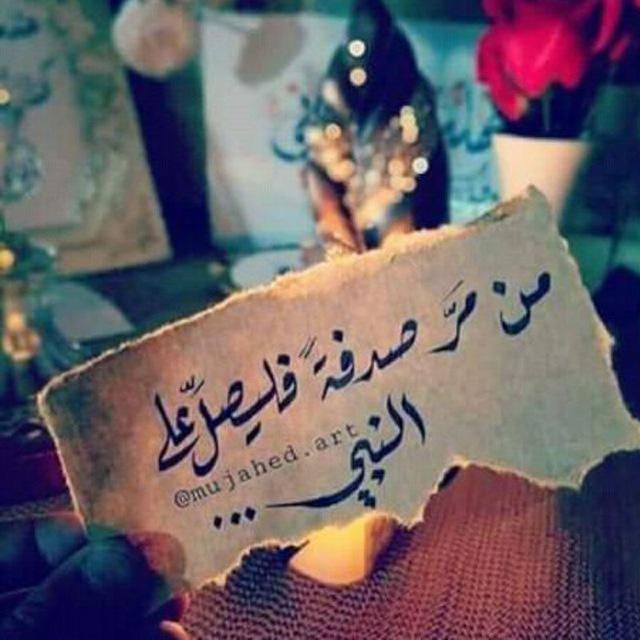 من مرَّ صدفةً فليصلِّ على
النبي ...
@mujahed.art